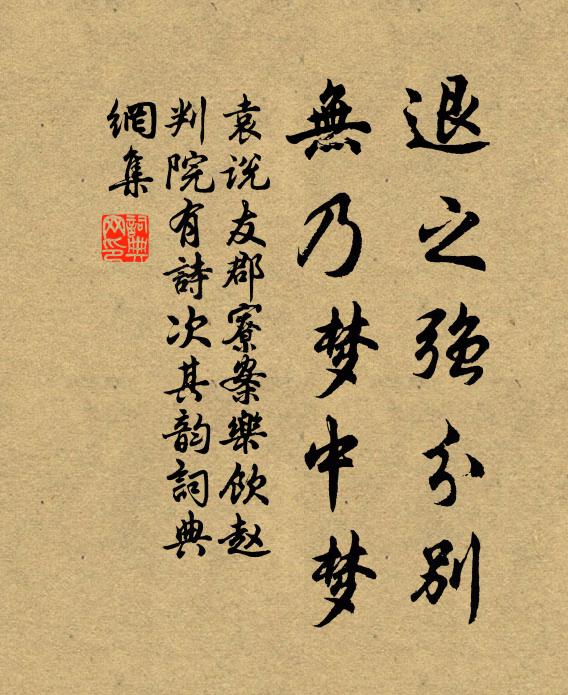 退之强分别
無乃梦中梦
袁说友郡寮案樂飲赵
判院有詩次其韵詞典
網集
詞典网印